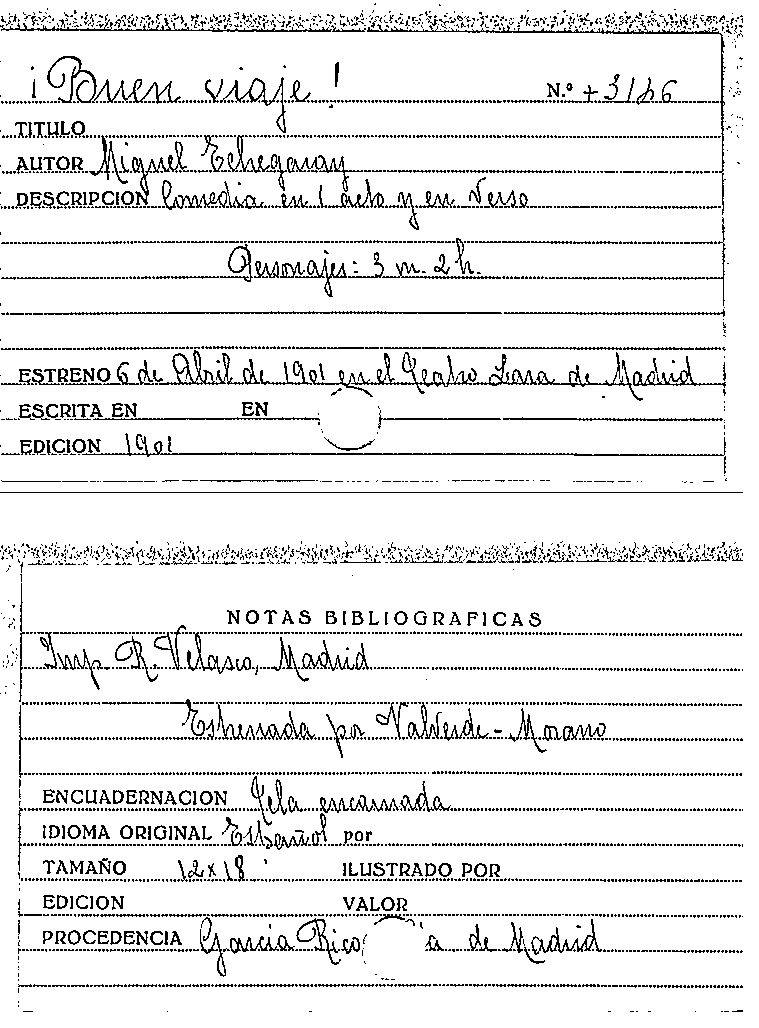 ¡Buen viaje! N.º + 3126
TITULO
AUTOR Miguel Echegaray
DESCRIPCION Comedia en 1 acto y en verso
Personajes: 3 m. 2 h.
ESTRENO 6 de Abril de 1901 en el Teatro Lara de Madrid
ESCRITA EN EN
EDICION 1901
NOTAS BIBLIOGRAFICAS
Imp. R. Velasco, Madrid
Estrenada por Valverde - Morano
ENCUADERNACION Tela encarnada
IDIOMA ORIGINAL Español por
TAMAÑO 12 x 18 ILUSTRADO POR
EDICION VALOR
PROCEDENCIA García Rico a de Madrid